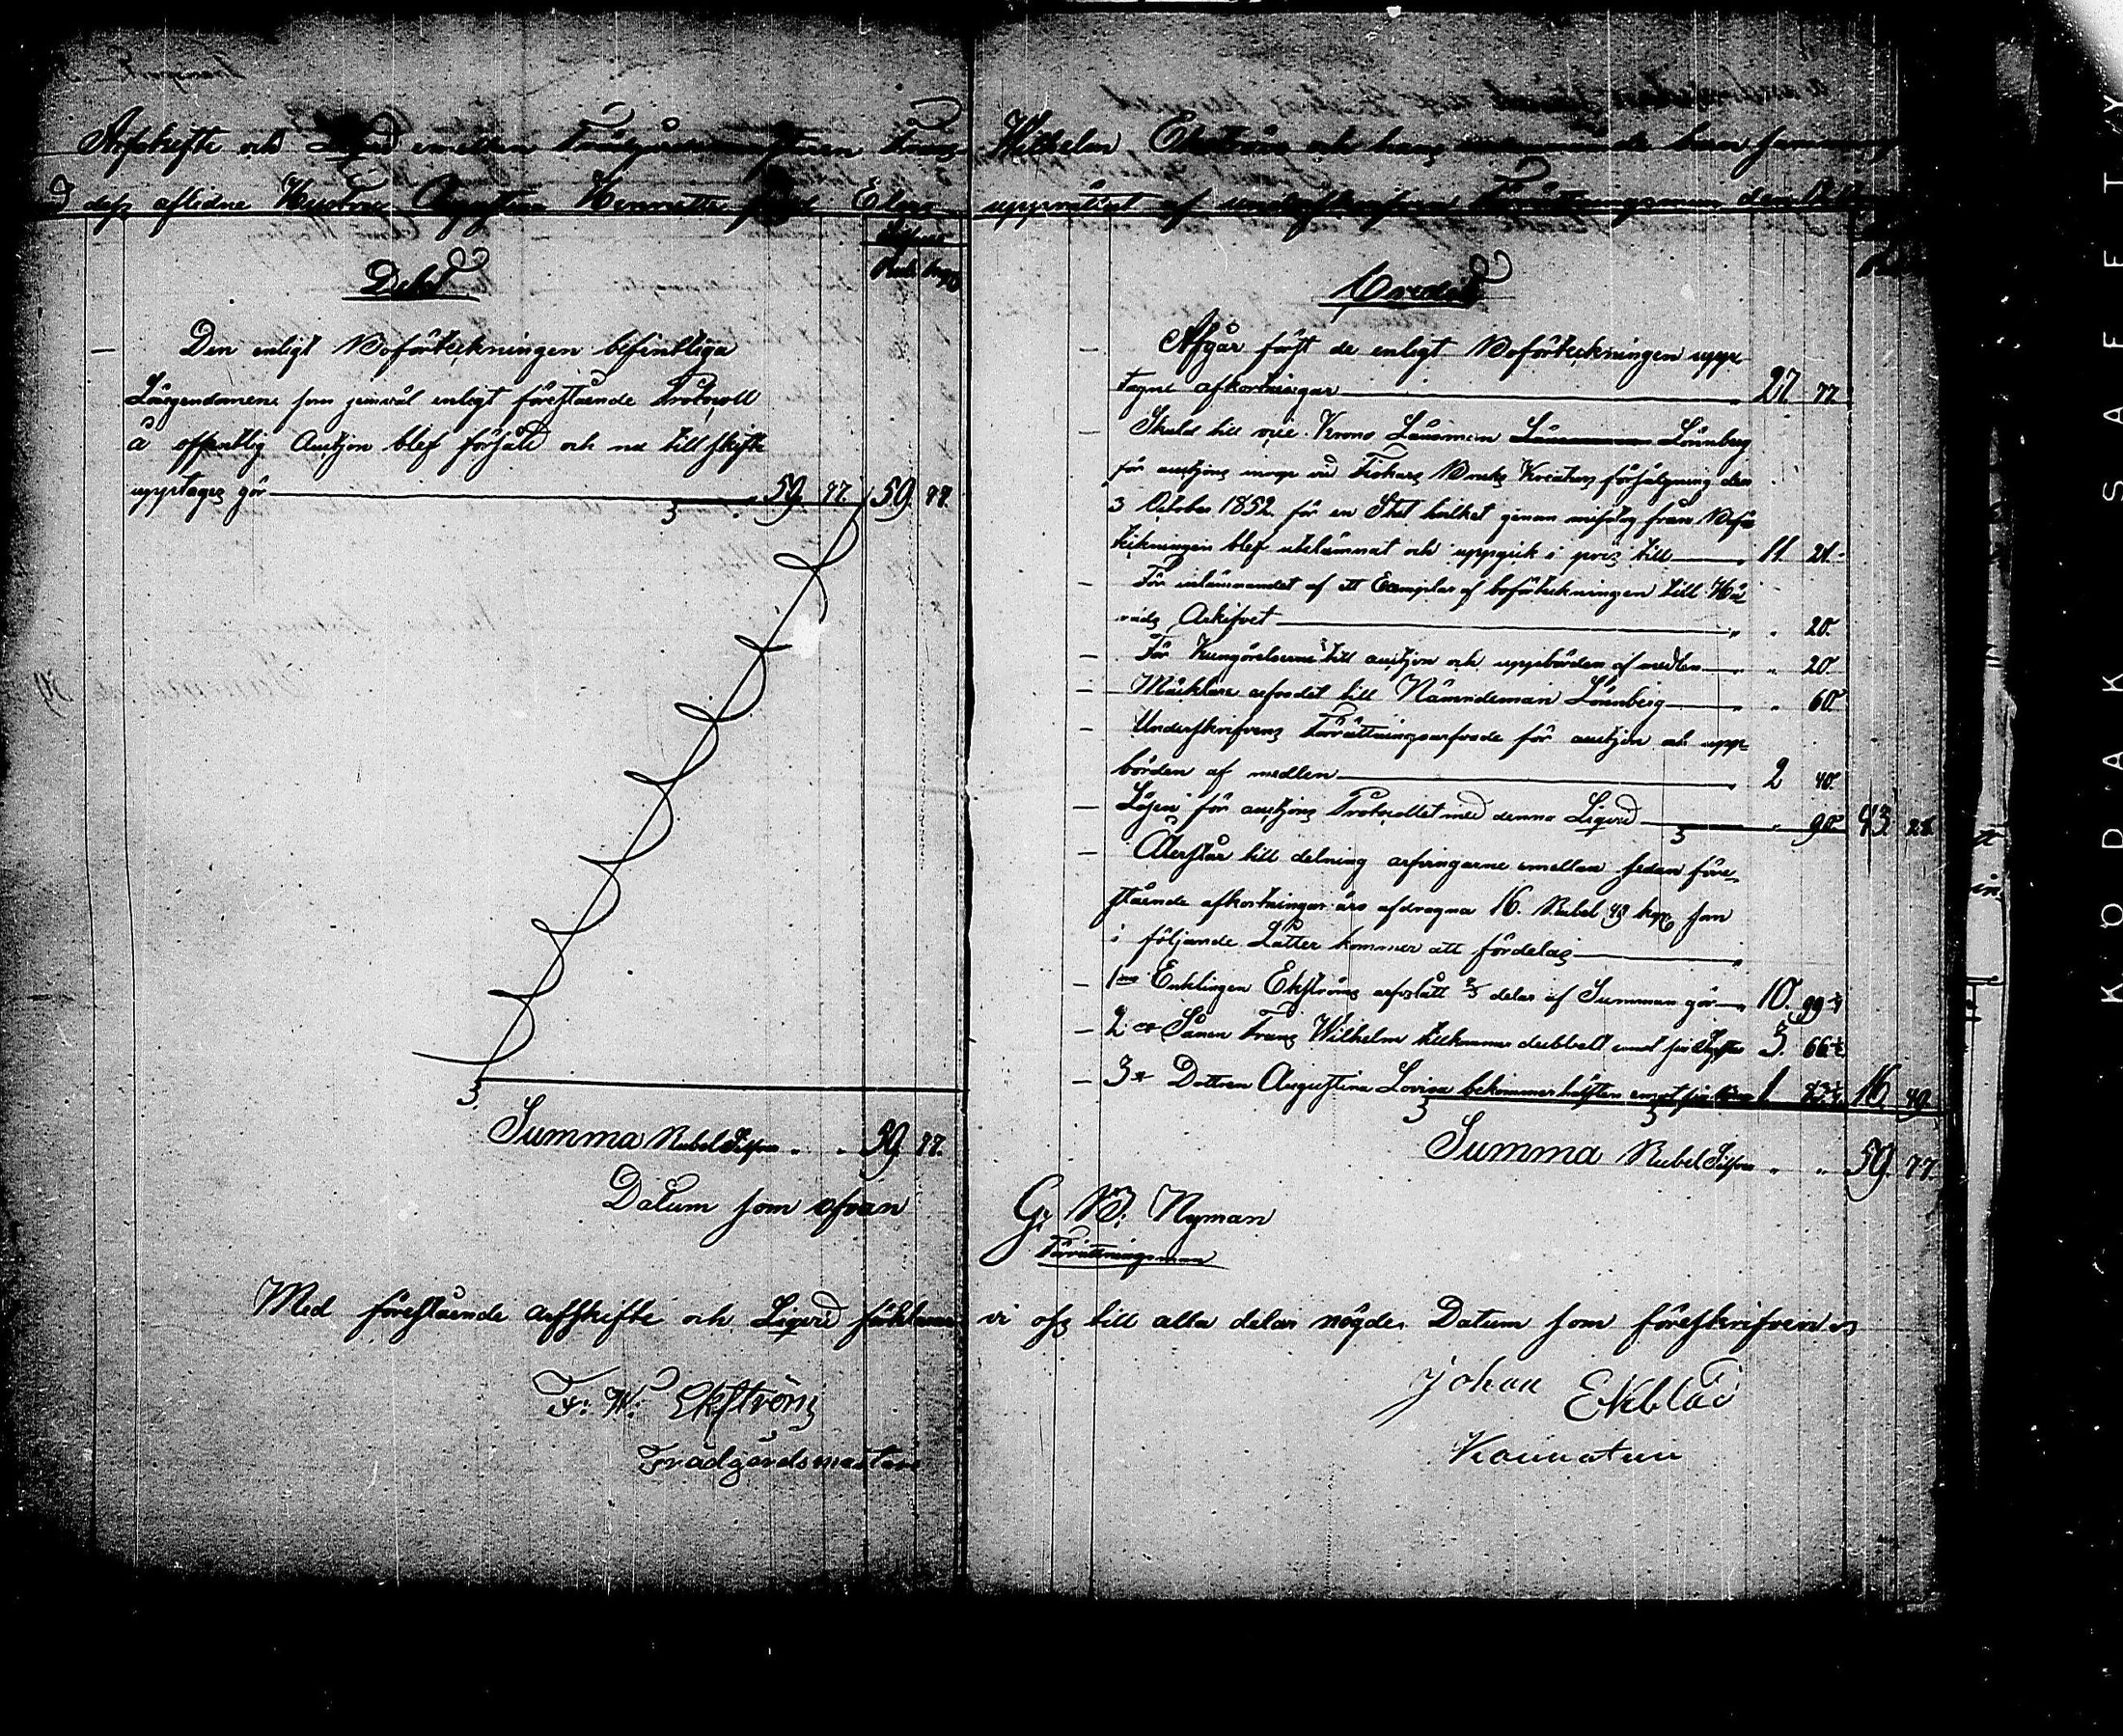 Arfskifte och Liqvid emellan Trädgårdsmästaren Frans Wilhelm Ekström och hans
dess aflidne Hustru Augustina Henrietta upprättat af undertecknad Förrättningsman den
Silfver
Rub. kop.
Debet
Den enligt Boförteckningen befintliga
Lösegendomen som jemväl enligt förestående Protocoll
å offentlig Auctjon blef försåld och nu till skifte
upptages gör 59. 77. 59 77.
Summa Rubel Silfver " " 59 77.
Datum som ofvan
Credit
Afgår först de enligt Boförteckningen upp-
tagne afkortningar " 27 77
Skuld till vice Krono Länsman Lönnberg
för auctjons inrop vid Fiskars Bruks Kreaturs försäljning den
3 October 1852 för en Stut hvilket genom misstag från Boför-
teckningen blef utelämnat och uppgick i pris till " 11. 21.
För inlämnandet af ett Exemplar af boförteckningen till Hä-
rads Arkifvet " " 20.
För Kungörelserne till auctjon och uppbörden af medlen " " 20.
Mäklare arfvodet till Nämndeman Lönnberg " " 60.
Underskrifvens Förrättningsarfvode för auctjon och upp-
börden af medlen " 2 40.
Lösen för auctjons Protocollet med denna Liqvid " 90. 43 28.
Återstår till delning arfvingarne emellan sedan före-
stående afkortningar äro afdragna 16. Rubel 49 kop. som
i följande Lotter kommer att fördelas "
1mo Enklingen Ekströms arfslått 2/3 delar af Summan gör " 10. 99 1/4
2do Sonen Frans Wilhelm tillkommer dubbelt emot sin Syster 3. 66 1/2
3o Dottren Augustina Lovisa bekommer hälften emot sin Bror 1 83 1/4 16 49.
Summa Rubel Silfver " " 59. 77.
G. W. Nyman
Förrättningsman
Med förestående arfskifte och Liqvid förklarar vi oss till alla delar nögde. Datum som föreskrifven är
F: W: Ekström
Trädgårdsmästare
Johan Ekblad
KODAK SAFETY